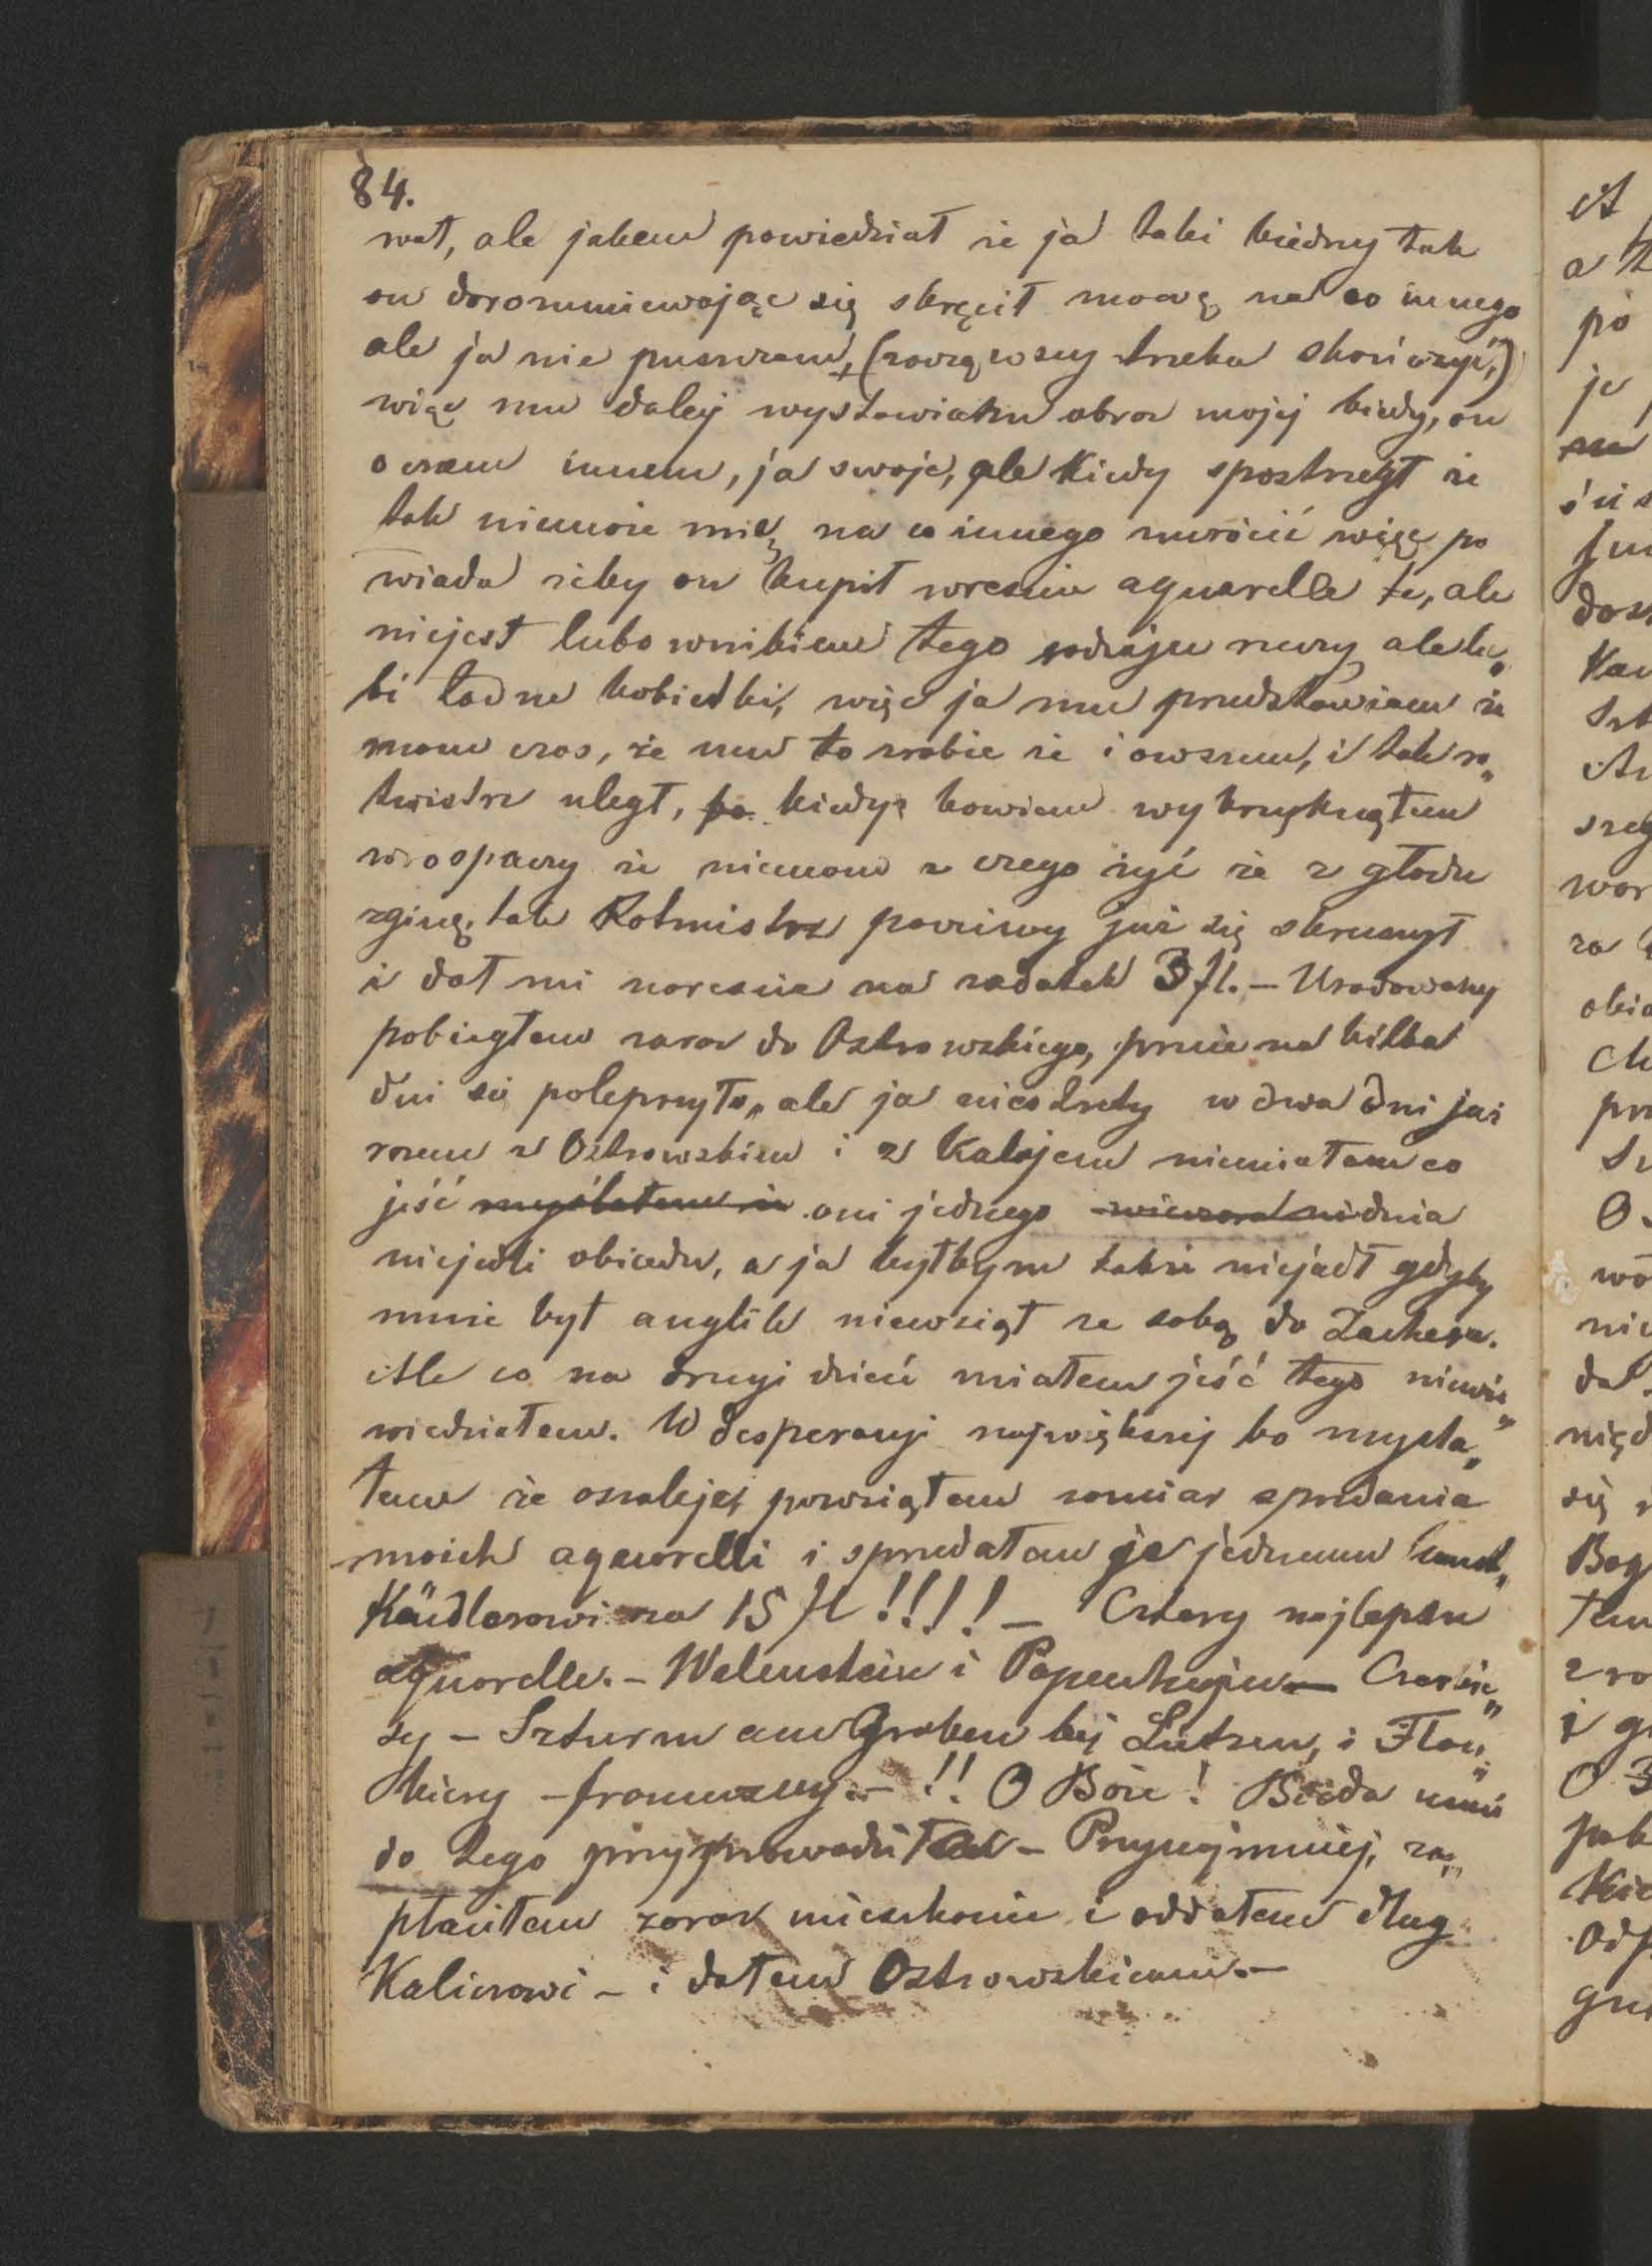 84.
wał, ale jakem powiedział że ja taki biedny tak
on dorozumiewając się skręcił mowę na co innego
ale ja nie puszczam, (zacząwszy trzeba skończyć,)
więc mu dalej wystawiam obraz mojej biedy, on
o czem innem, ja swoje, ale kiedy spostrzegł że
tak niemoże mię na co innego zwrócić więc po
wiada żeby on kupił wreszcie aquarelle te, ale
niejest lubownikiem tego rodzaju rzeczy ale lu„
bi ładne kobietki, więc ja mu przedstawiam że
mam czas, że mu to zrobie że i owszem, i tak ro„
tmistrz uległ, kiedy bowiem wykrzyknąłem
w rospaczy że niemam z czego żyć że z głodu
zginę, tak Rotmistrz poczciwy już się skruszył
i dał mi nareszcie na zadatek 3 fl. – Uradowany
pobiegłem zaraz do Ostrowskiego, przecie na kilka
dni się polepszyło, ale ja niestety w dwa dni już
razem z Ostrowskim i z Kalojem niemiałem co
jeść myślałem że oni jednego dnia
niejedli obiadu, a ja byłbym także niejadł gdyby
mnie był anglik niewziął ze sobą do Zachera.
Ale co na drugi dzień miałem jeść tego niewie„
wiedziałem. W desperacyi największej bo mysla„
łem że oszaleję, powziąłem zamiar sprzedania
moich aquarelli i sprzedałem je jednemu kunst„
händlerowi za 15 fl !!!! – Cztery najlepsze
aquarelle. – Walenstein i Papenhejm – Czerkie„
sy – Szturm am Graben bej Lützen, i Flan„
kiery – francuzcy. – !! O Boże! Bieda mnie
do tego przyprowadziła – Przynajmniej, za„
płaciłem zaraz mieszkanie i oddałem dług
Kalicrowi – i dałem Ostrowskiemu. –